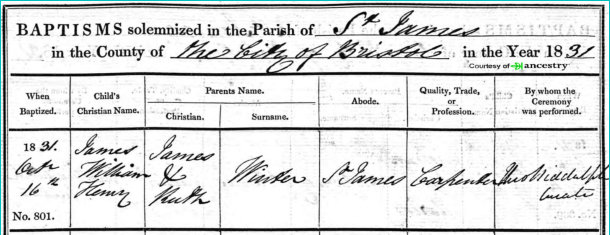 BAPTISMS solemnized in the Parish of St. James
in the County of the City of Bristol in the Year 1831
Courtesy of ancestry
When Baptized.
Child's Christian Name.
Parents Name.
Christian.
Surname.
Abode.
Quality, Trade, or Profession.
By whom the Ceremony was performed.
1831.
Octr
16th
No. 801.
James
William
Henry
James
&
Ruth
Winter
St James
Carpenter
Thos Biddulph
Curate